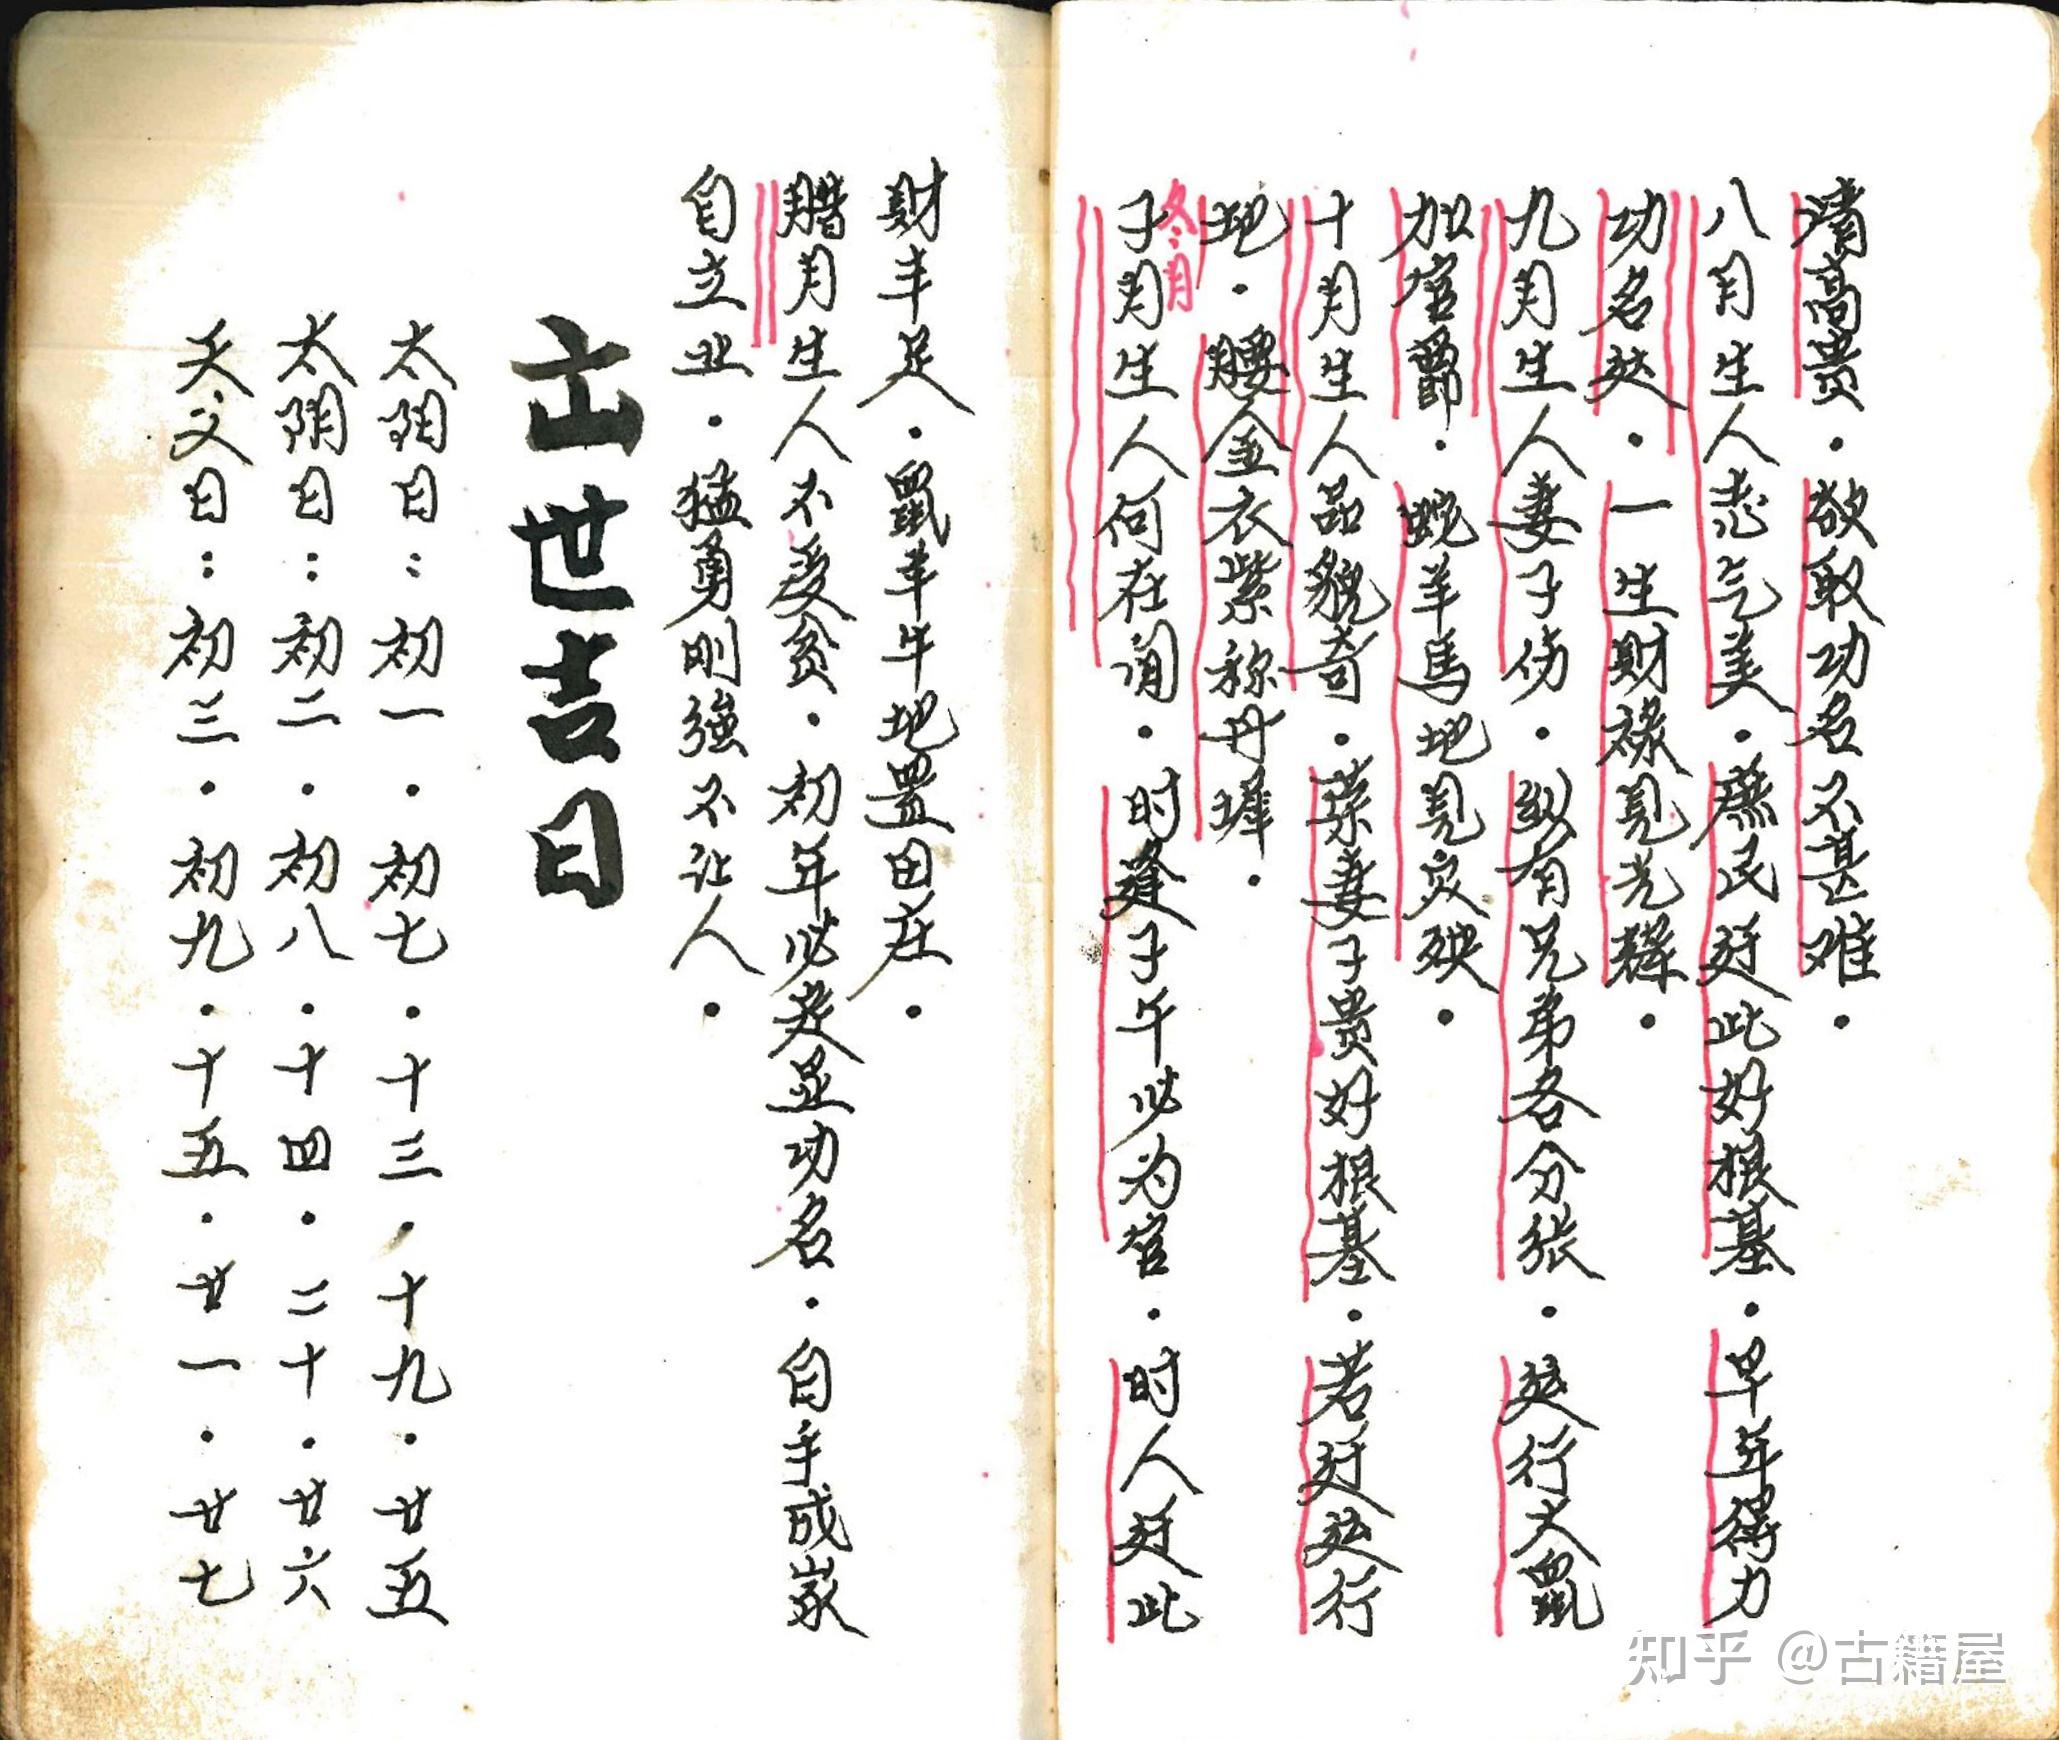 清高贵·欲取功名不甚难·
八月生人志气美·庶民廷此好根基·早年得力
功名处·一生财禄見光辉·
九月生人妻子伤·纵有兄弟各分张·运行犬鼠
加官爵·蛇羊馬地見灾殃·
十月生人品貌奇·荣妻子贵好根基·若廷运行
地·腰金衣紫称丹墀·
冬月
子月生人何在间·时逢子午必为官·时人廷此
財丰足·鼠羊午地置田庄·
腊月生人不受贫·初年必定並功名·自手成家
自立业·猛勇刚強不让人·
出世吉日
太阳日：初一·初七·十三·十九·廿五
太阴日：初二·初八·十四·二十·廿六
天父日：初三·初九·十五·廿一·廿七
知乎 @古籍屋